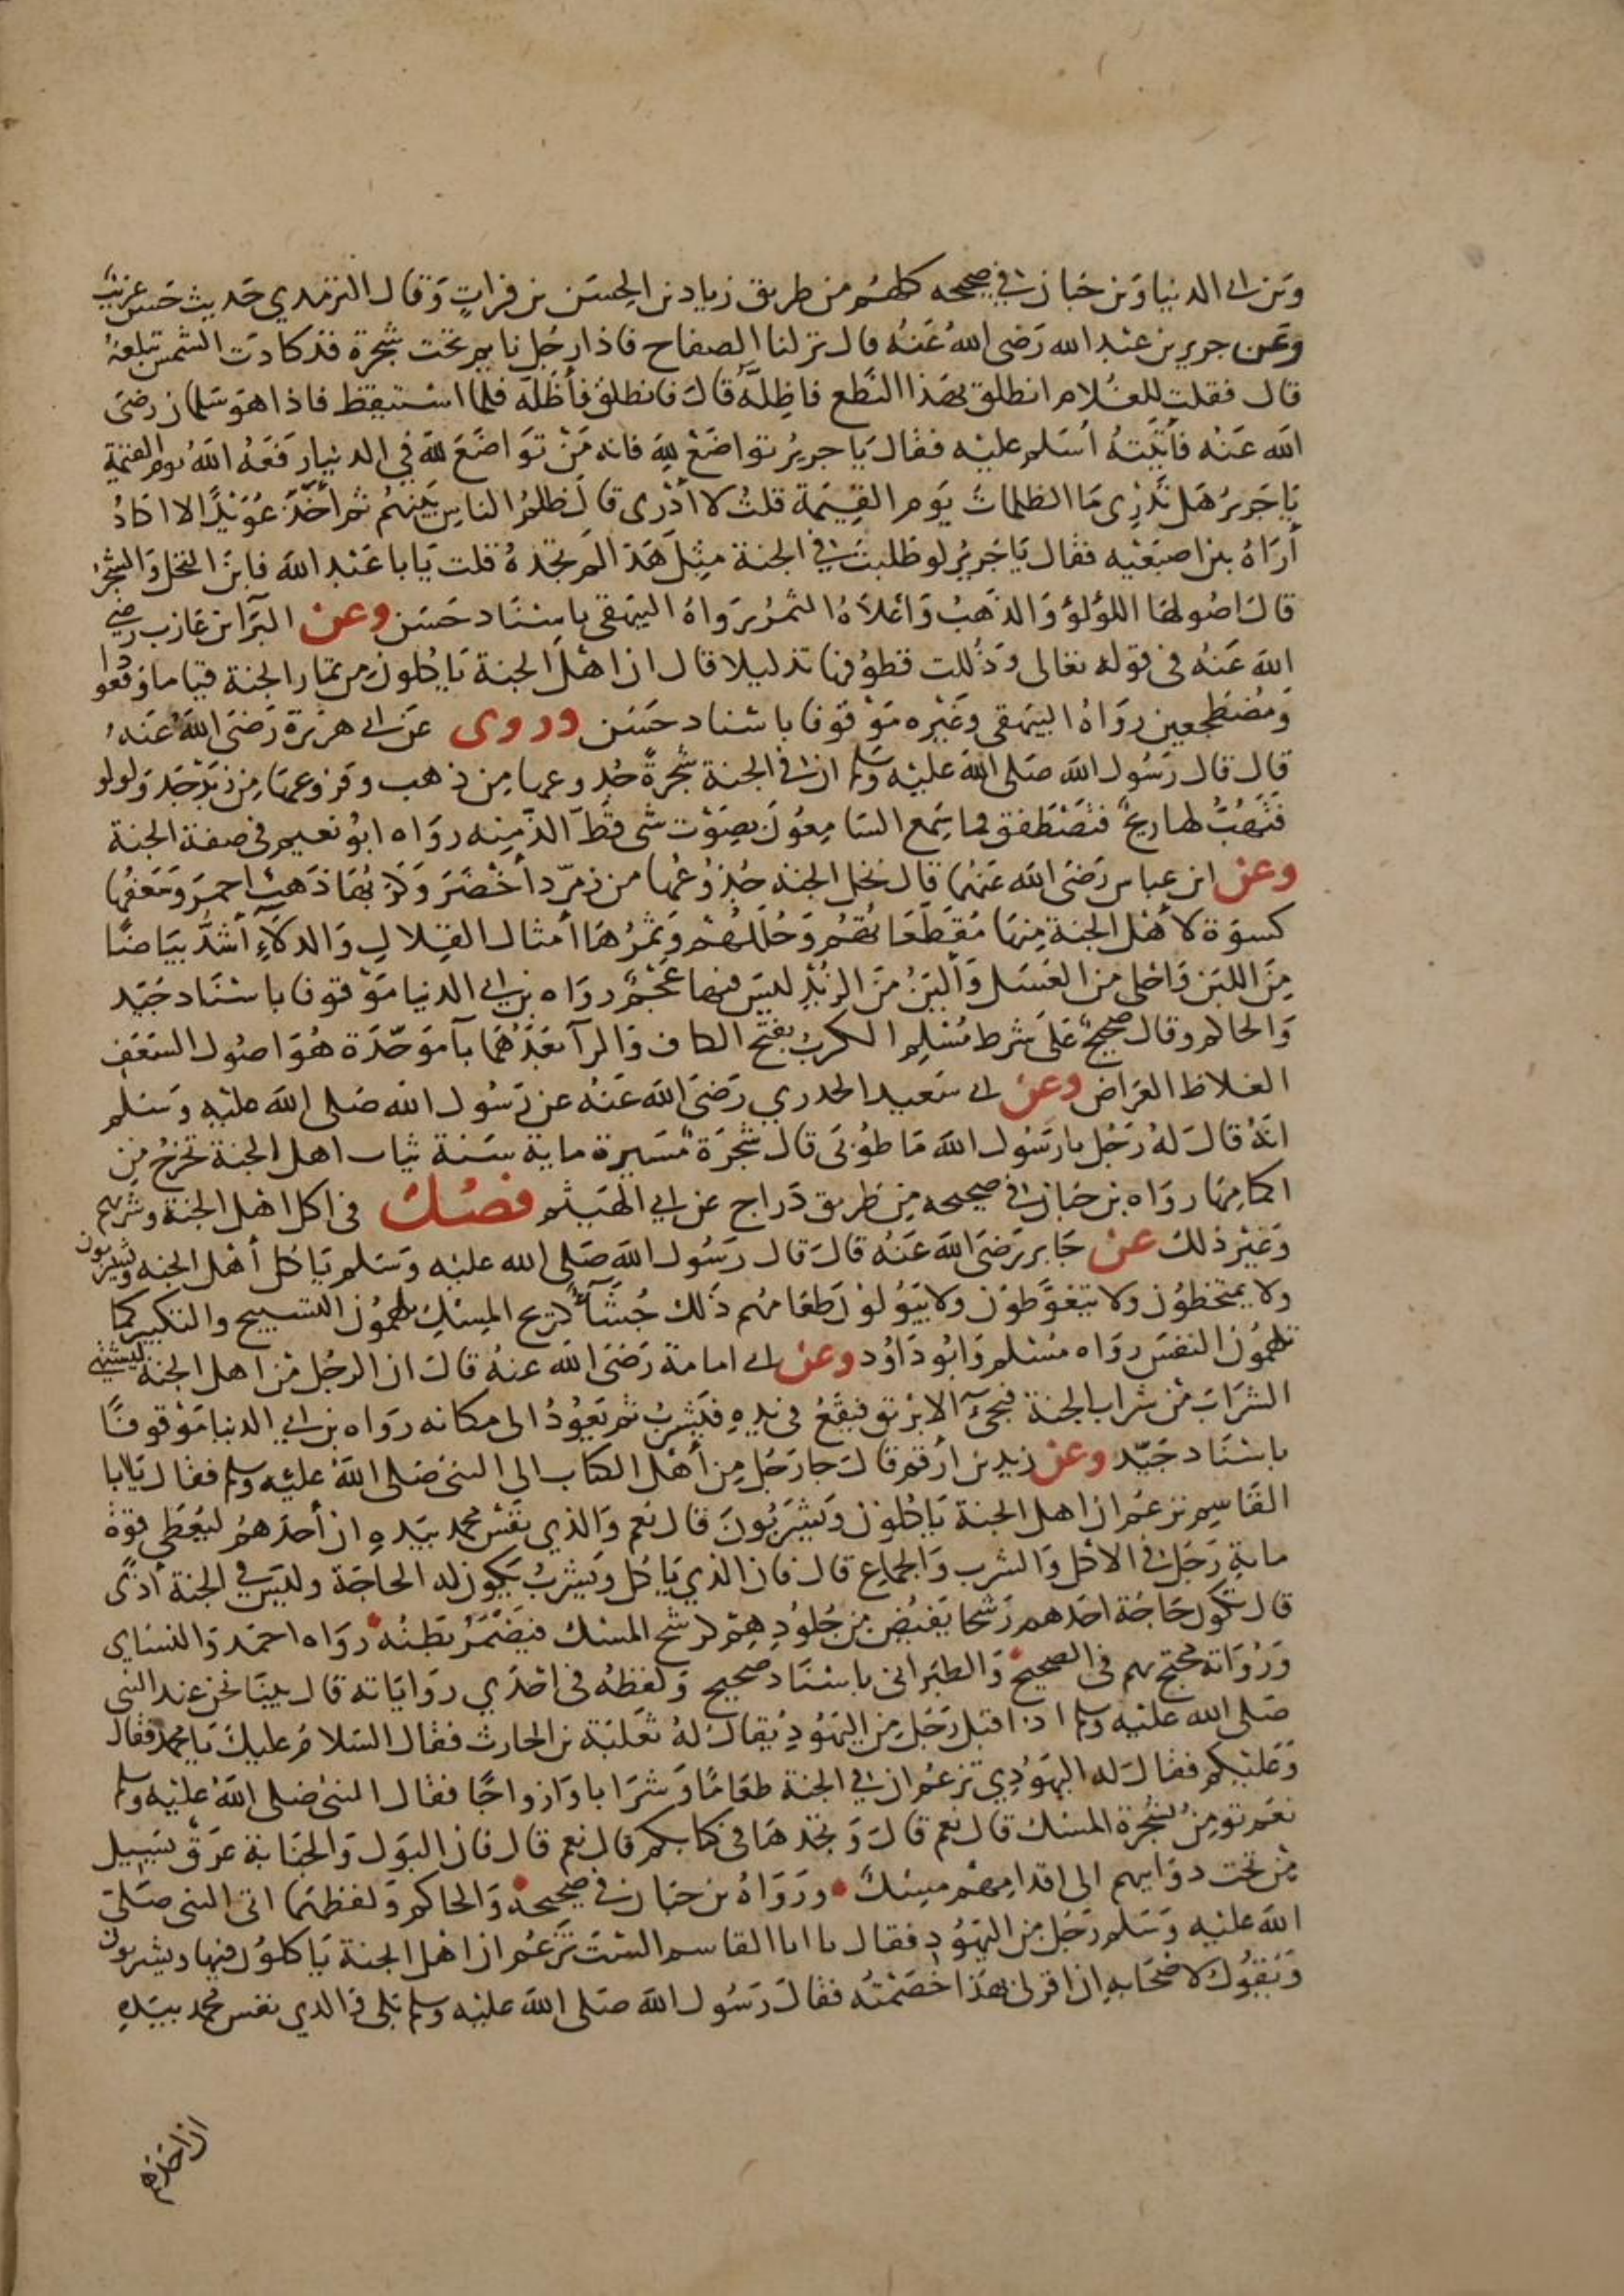 وبن ابي الدنيا وبن حبان في صحيحه كلهم من طريق زياد بن الحسن بن فرات وقال الترمذي حديث حسن غريب
وعن جرير بن عبد الله رضى الله عنه قال نزلنا الصفاح فاذا رجل نايم تحت شجرة قد كادت الشمس تبلغه
قال فقلت للغلام انطلق بهذا النطع فاظله قال فانطلق فأظله فلما استيقظ فاذا هو سلمان رضى
الله عنه فأتيته أسلم عليه فقال يا جرير تواضع لله فانه من تواضع لله في الدنيا رفعه الله يوم القيمة
يا جرير هل تدرى ما الظلمات يوم القيمة قلت لا أدرى قال ظلم الناس بينهم ثم أخذ عويدا لا اكاد
أراه بين اصبعيه فقال يا جرير لو طلبت في الجنة مثل هذا لم تجده قلت يابا عبد الله فاين النخل والشجر
قال اصولها اللؤلؤ والذهب واعلاه الثمر رواه البيهقى باسناد حسن وعن البرآ بن عازب رضي
الله عنه فى قوله تعالى وذللت قطوفها تذليلا قال ان اهل الجنة ياكلون من ثمار الجنة قياما وقعودا
ومضطجعين رواه البيهقى وغيره موقوفا باسناد حسن وروى عن ابي هريرة رضى الله عنه
قال قال رسول الله صلى الله عليه وسلم ان في الجنة شجرة جذوعها من ذهب وفروعها من زبرجد ولولو
فتهب لها ريح فتصطفق فما سمع السامعون بصوت شى قط الذ منه رواه ابو نعيم فى صفة الجنة
وعن ابن عباس رضى الله عنهما قال نخل الجنة جذوعها من زمرد أخضر وكربها ذهب احمر وسعفها
كسوة لأهل الجنة منها مقطعاتهم وحللهم وثمرها أمثال القلال والدلاء أشد بياضا
من اللبن واحلى من العسل وألين من الزبد ليس فيها عجم رواه بن ابي الدنيا موقوفا باسناد جيد
والحاكم وقال صحيح على شرط مسلم الكرب بفتح الكاف والرآ بعدهما بآ موحدة هو اصول السعف
الغلاظ العراض وعن ابي سعيد الخدري رضى الله عنه عن رسول الله صلى الله عليه وسلم
انه قال له رجل يا رسول الله ما طوبى قال شجرة مسيرة ماية سنة ثياب اهل الجنة تخرج من
اكمامها رواه بن حبان في صحيحه من طريق دراج عن ابي الهيثم فصل فى اكل اهل الجنة وشربهم
وغير ذلك عن جابر رضى الله عنه قال قال رسول الله صلى الله عليه وسلم ياكل أهل الجنة ويشربون
ولا يمتخطون ولا يتغوطون ولا يبولون طعامهم ذلك جشآء كريح المسك يلهمون التسبيح والتكبير كما
تلهمون النفس رواه مسلم وابو داود وعن ابي امامة رضى الله عنه قال ان الرجل من اهل الجنة ليشتهي
الشراب من شراب الجنة فيجئ الابريق فيقع فى يده فيشرب ثم يعود الى مكانه رواه بن ابي الدنيا موقوفا
باسناد جيد وعن زيد بن أرقم قال جا رجل من أهل الكتاب الى النبى صلى الله عليه وسلم فقال يابا
القاسم تزعم ان اهل الجنة ياكلون ويشربون قال نعم والذي نفس محمد بيده ان أحدهم ليعطى قوة
ماية رجل في الاكل والشرب والجماع قال فان الذي ياكل ويشرب يكون له الحاجة وليس في الجنة أذى
قال تكون حاجة احدهم رشحا يفيض من جلودهم كرشح المسك فيضمر بطنه رواه احمد والنساى
ورواته محتج بهم فى الصحيح والطبرانى باسناد صحيح ولفظه فى احدي رواياته قال بينا نحن عند النبى
صلى الله عليه وسلم اذ اقبل رجل من اليهود يقال له ثعلبة بن الحارث فقال السلام عليك يا محمد فقال
وعليكم فقال له اليهودي تزعم ان في الجنة طعاما وشرابا وازواجا فقال النبى صلى الله عليه وسلم
نعم تومن بشجرة المسك قال نعم قال وتجدها فى كتابكم قال نعم قال فان البول والجنابة عرق يسيل
من تحت ذوايبهم الى اقدامهم مسك ورواه بن حبان في صحيحه والحاكم ولفظهما اتى النبى صلى
الله عليه وسلم رجل من اليهود فقال يا ابا القاسم الست تزعم ان اهل الجنة ياكلون فيها ويشربون
ويقول لاصحابه ان اقر لى بهذا خصمته فقال رسول الله صلى الله عليه وسلم بلى والذي نفس محمد بيده
ان احدهم